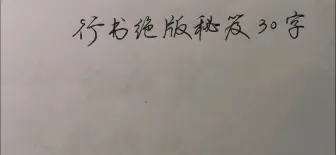 行书绝版秘笈30字